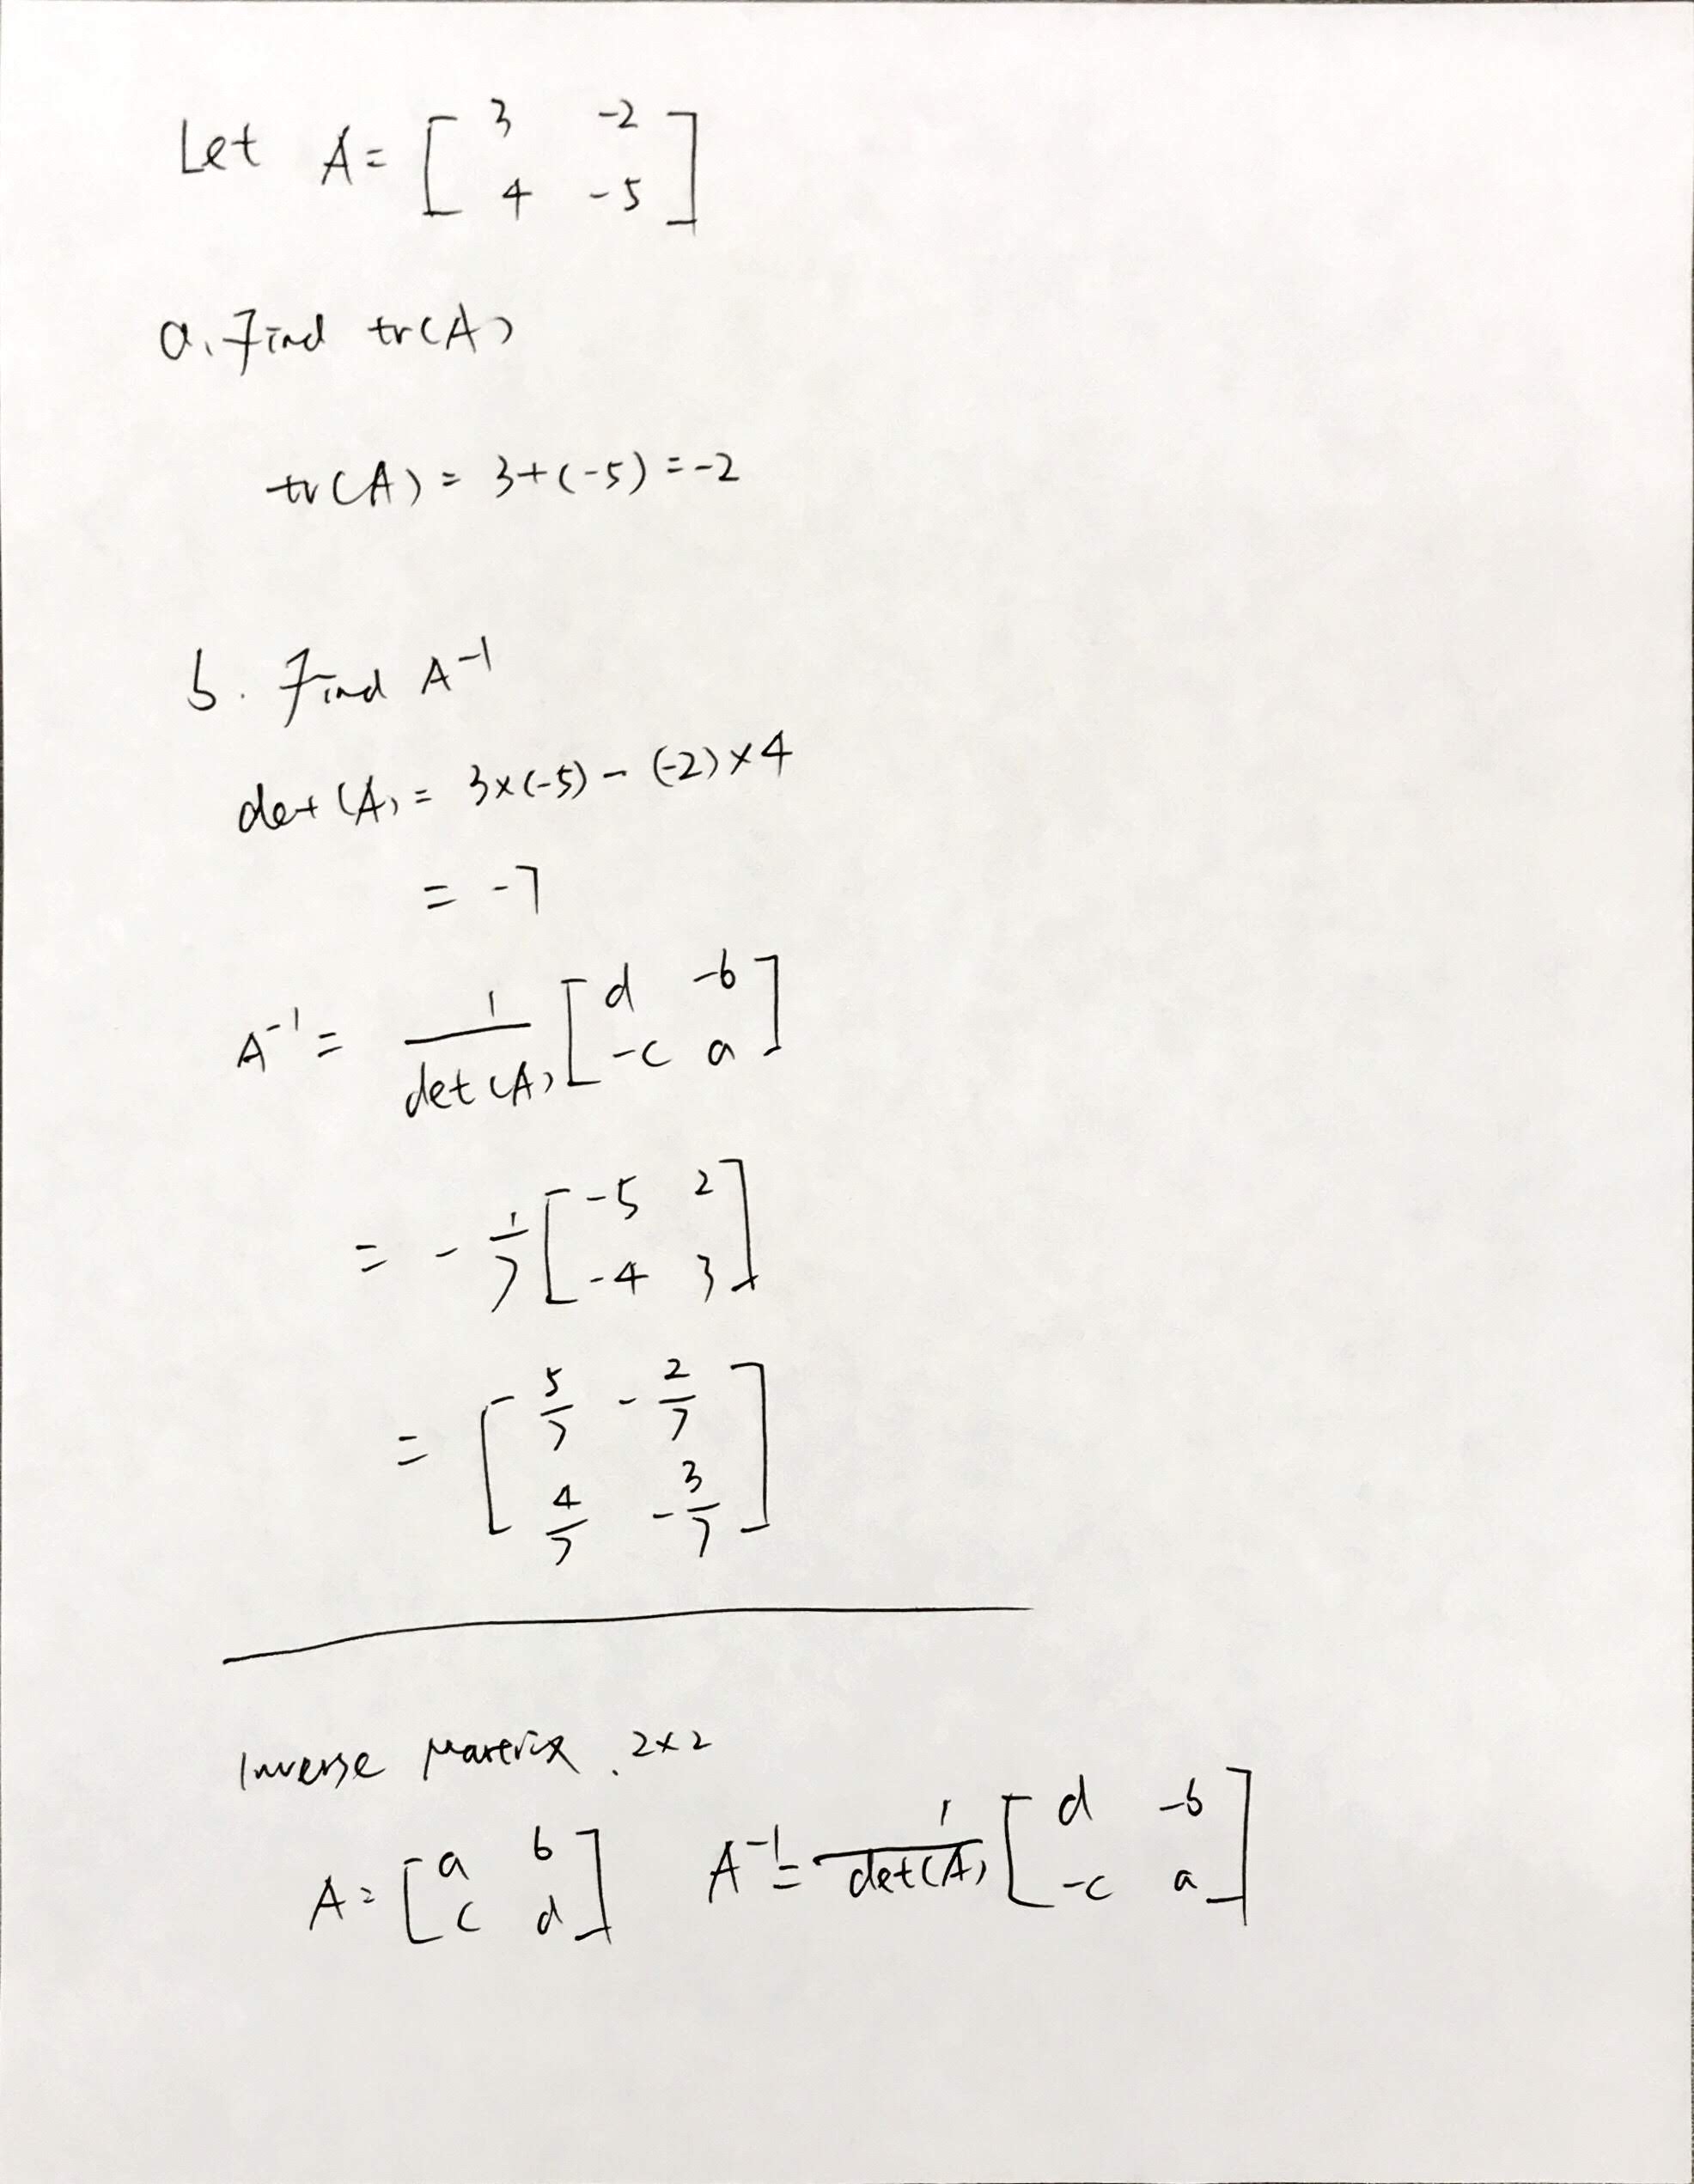 Let A = [ 3 -2
4 -5 ]
a. Find tr(A)
tr(A) = 3+(-5) = -2
b. Find A⁻¹
det(A) = 3×(-5) - (-2)×4
= -7
A⁻¹ = 1/det(A) [ d -b
-c a ]
= - 1/7 [ -5 2
-4 3 ]
= [ 5/7 - 2/7
4/7 - 3/7 ]
Inverse Matrix . 2×2
A = [ a b
c d ] A⁻¹ = 1/det(A) [ d -b
-c a ]